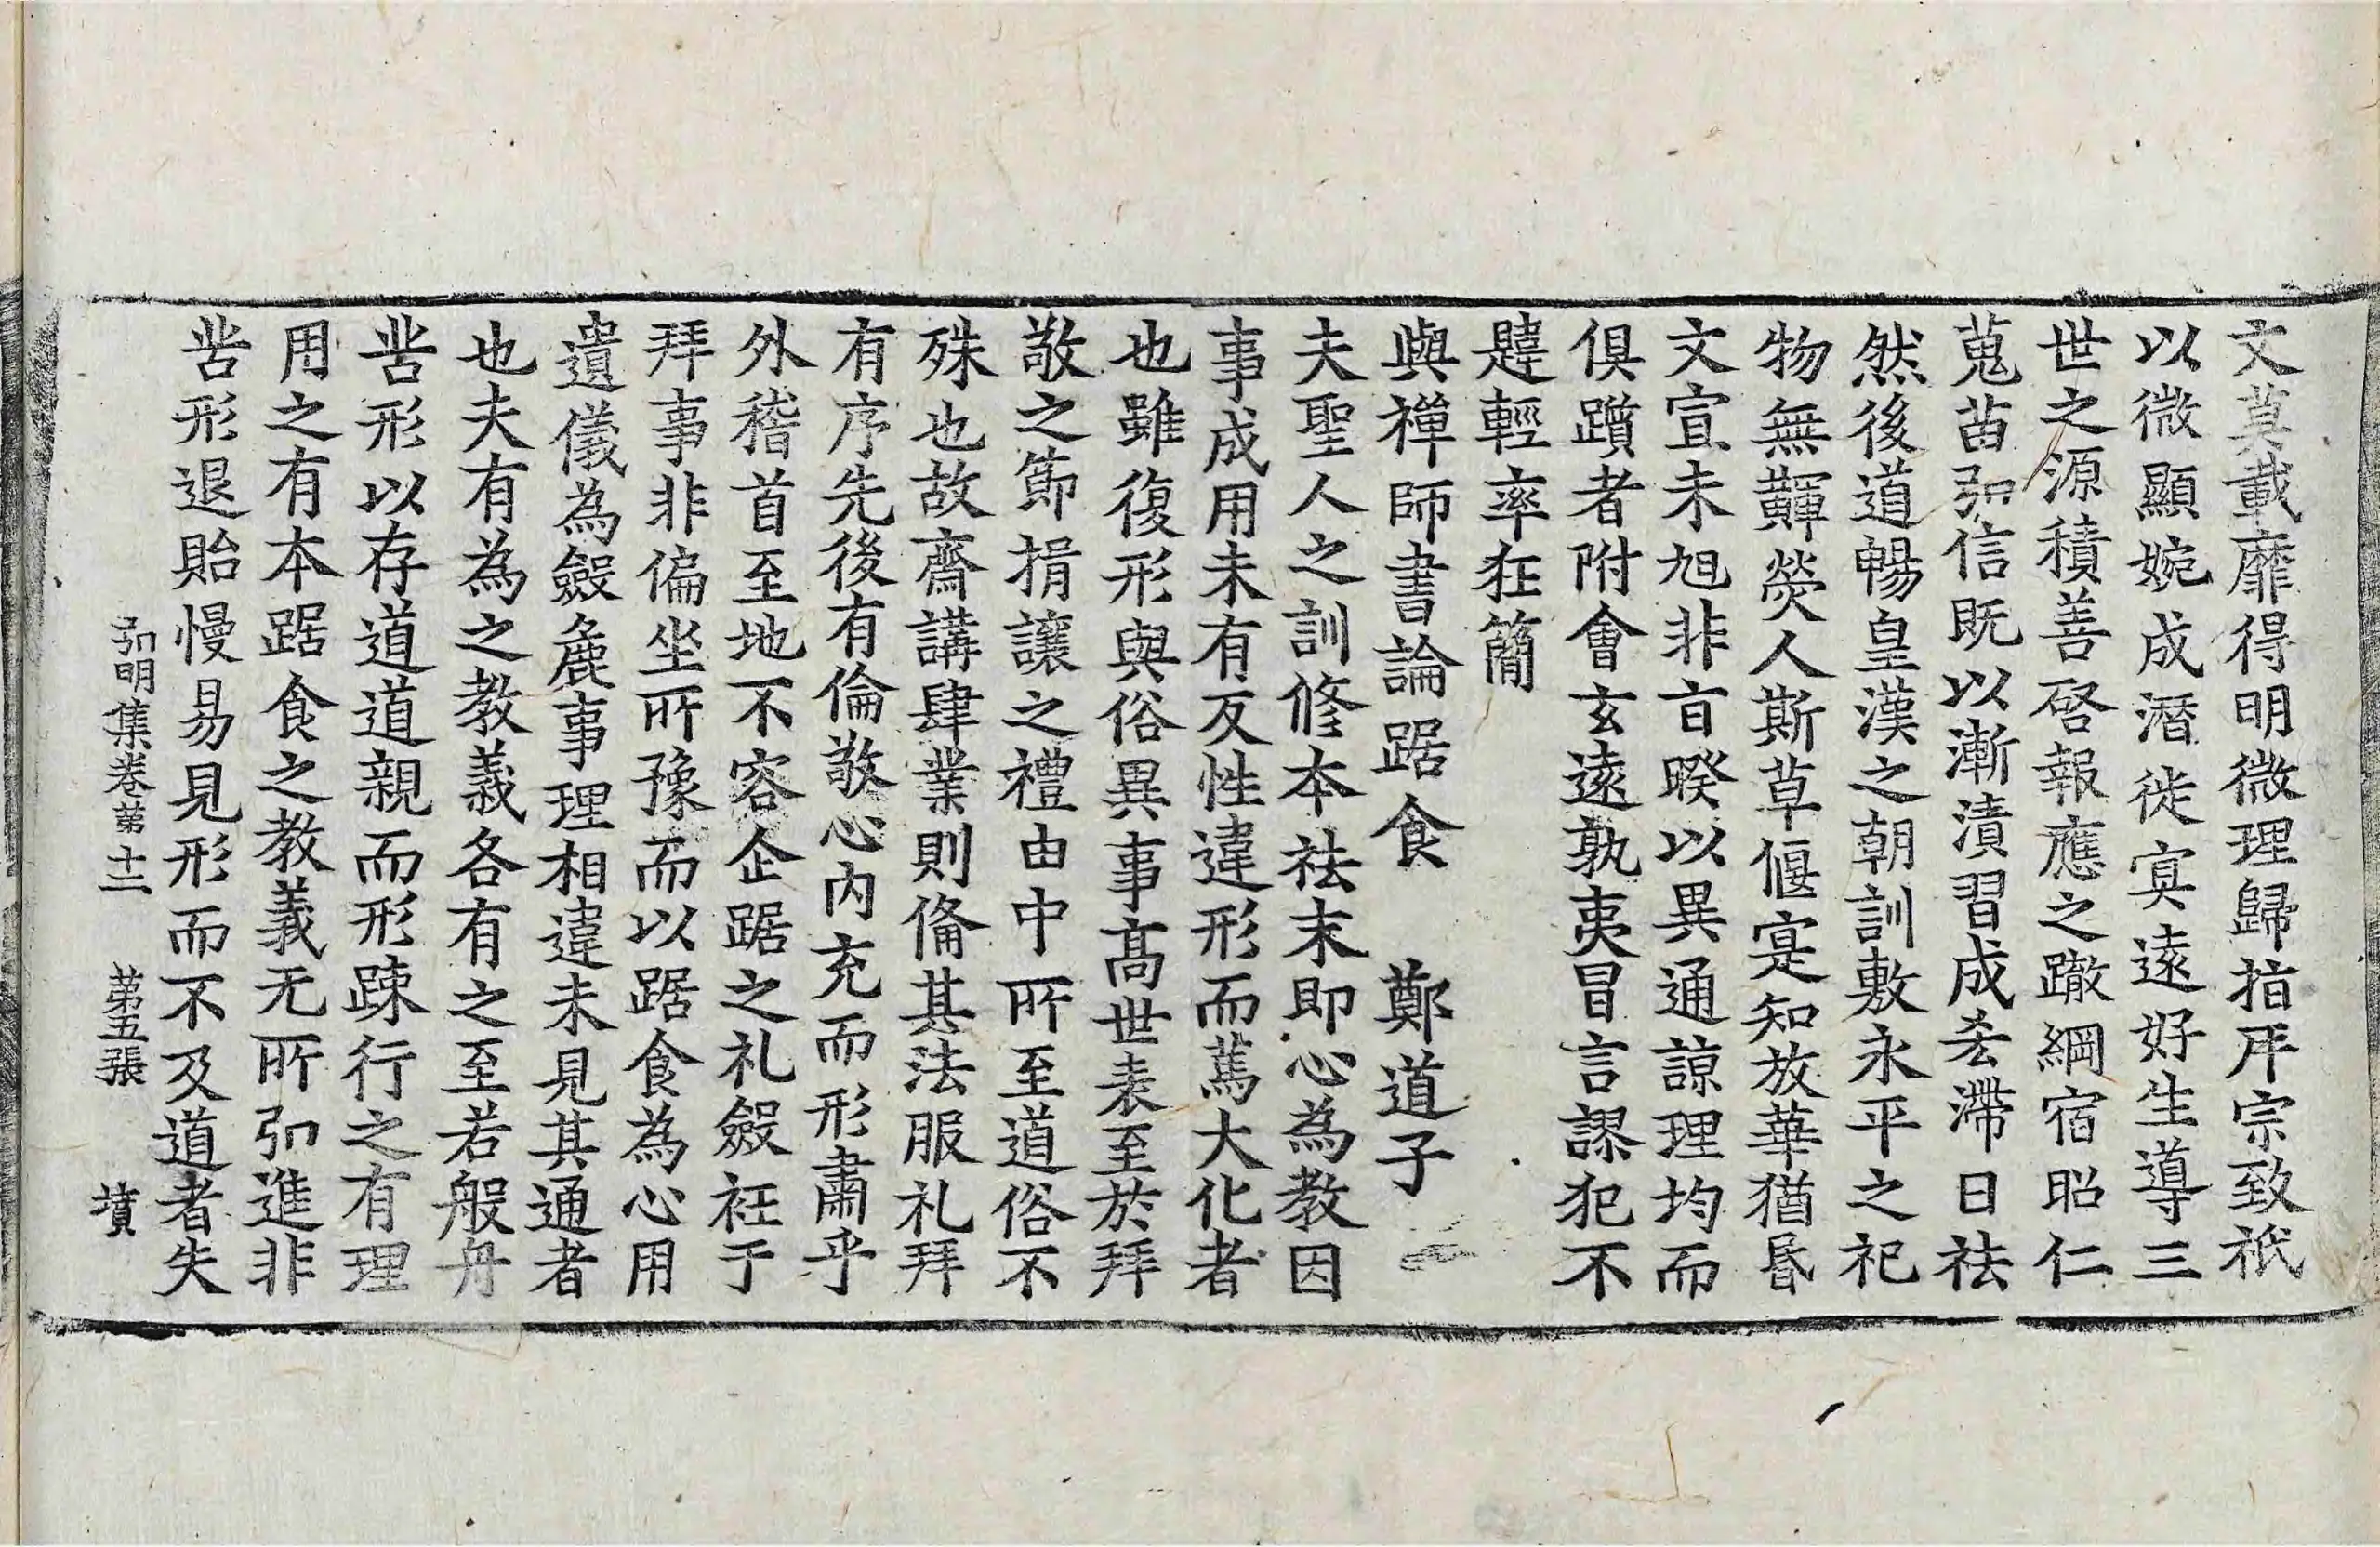 文莫載靡得明微理歸指斥宗致祇
以微顯婉成潛徙寘遠好生導三
世之源積善啓報應之轍綱宿昭仁
蒐苗弘信既以漸漬習成吝滯日祛
然後道暢皇漢之朝訓敷永平之祀
物無𩏂熒人斯草偃寔知放華猶昬
文宣未旭非旨暌以異通諒理均而
俱躓者附會玄遠孰夷冒言謬犯不
韙輕率狂簡
與禪師書論踞食　鄭道子
夫聖人之訓修本祛末即心為教因
事成用未有反性違形而篤大化者
也雖復形與俗異事髙世表至於拜
敬之節揖讓之禮由中所至道俗不
殊也故齋講肆業則俻其法服礼拜
有序先後有倫敬心內充而形肅乎
外稽首至地不容企踞之礼斂衽于
拜事非偏坐所豫而以踞食為心用
遺儀為斂麁事理相違未見其通者
也夫有為之教義各有之至若般舟
苦形以存道道親而形踈行之有理
用之有本踞食之教義无所弘進非
苦形退貽慢易見形而不及道者失
弘明集卷第十二　第五張　墳